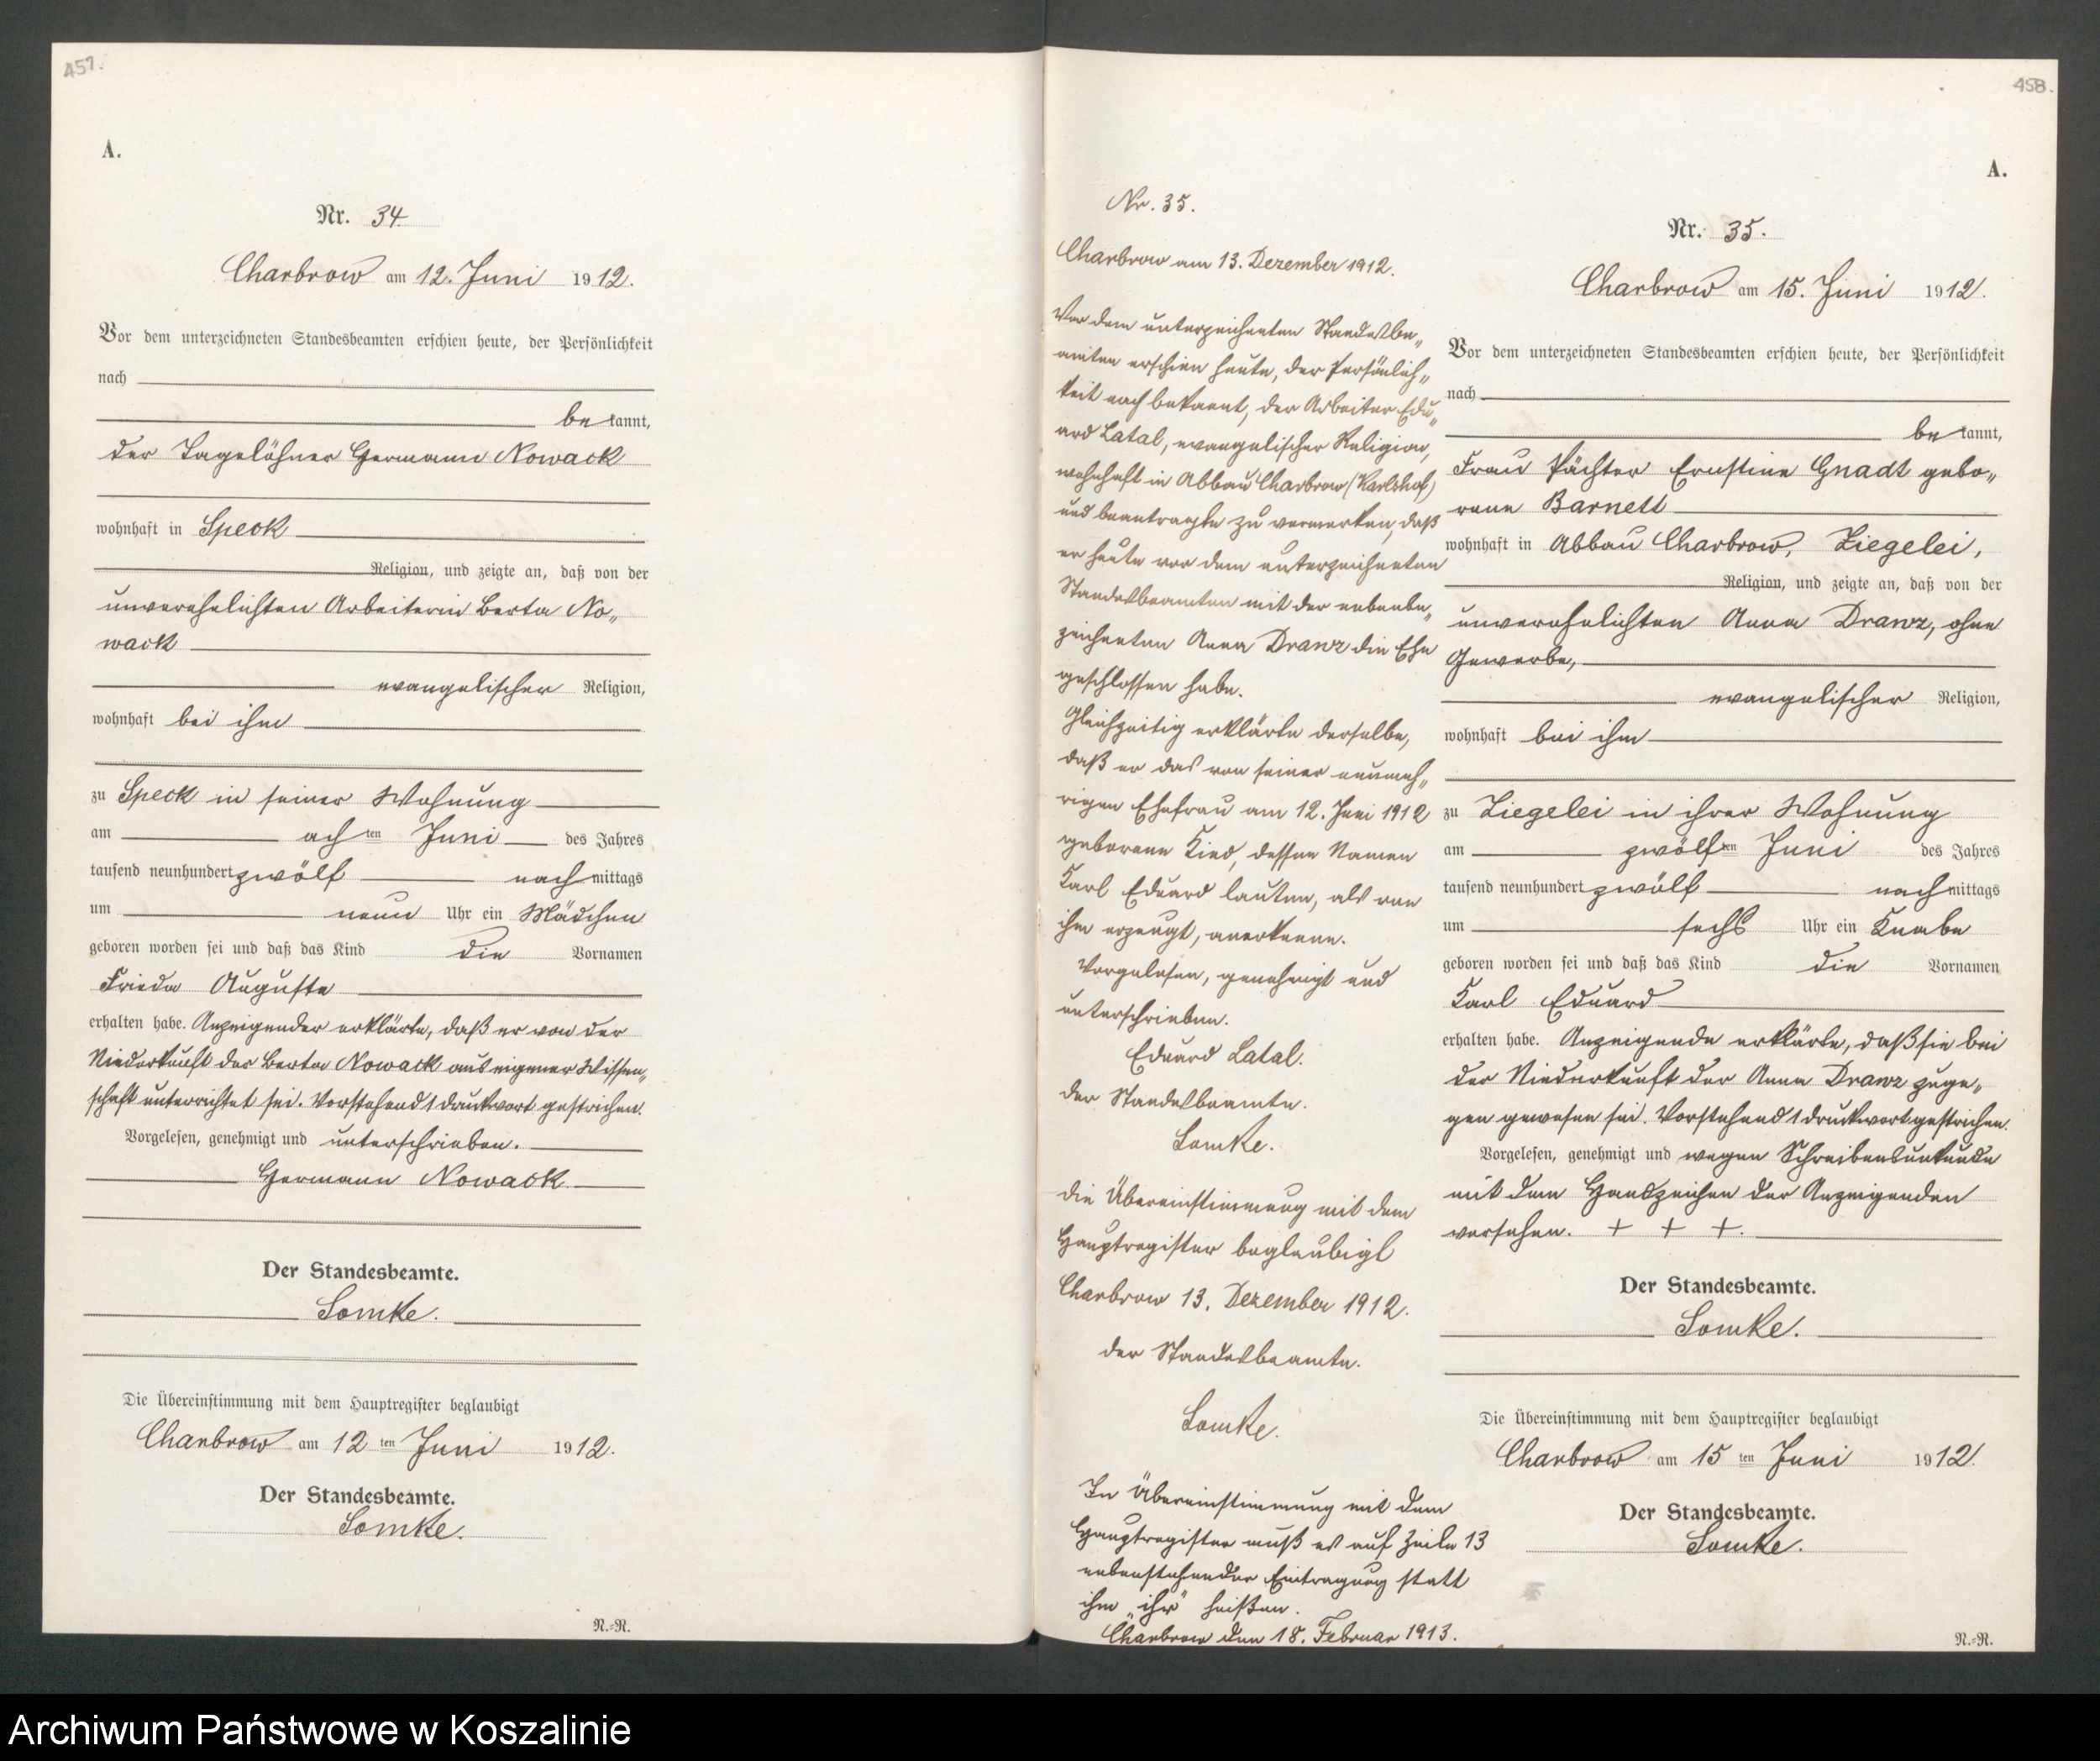 457.
A.
Nr. 34.
Charbrow am 12. Juni 1912.
Vor dem unterzeichneten Standesbeamten erschien heute, der Persönlichkeit
nach
be kannt,
der Tagelöhner Hermann Nowack
wohnhaft in Speck
Religion, und zeigte an, daß von der
unverehelichten Arbeiterin Berta No„
wack
evangelischer Religion,
wohnhaft bei ihm
zu Speck in seiner Wohnung
am ach ten Juni des Jahres
tausend neunhundert zwölf nach mittags
um neun Uhr ein Mädchen
geboren worden sei und daß das Kind die Vornamen
Frieda Auguste
erhalten habe. Anzeigender erklärte, daß er von der
Niederkunft der Berta Nowack aus eigener Wissen„
schaft unterrichtet sei. Vorstehend 1 Druckwort gestrichen.
Vorgelesen, genehmigt und unterschrieben.
Hermann Nowack
Der Standesbeamte.
Lomke.
Die Übereinstimmung mit dem Hauptregister beglaubigt
Charbrow am 12 ten Juni 1912.
Der Standesbeamte.
Lomke.
N.=N.
458.
A.
Nr. 35.
Charbrow am 13. Dezember 1912.
Vor dem unterzeichneten Standesbe„
amten erschien heute, der Persönlich„
keit nach bekannt, der Arbeiter Edu„
ard Latal, evangelischer Religion,
wohnhaft in Abbau Charbrow (Karlshof)
und beantragte zu vermerken, daß
er heute vor dem unterzeichneten
Standesbeamten mit der nebenbe„
zeichneten Anna Drawz die Ehe
geschlossen habe.
Gleichzeitig erklärte derselbe,
daß er das von seiner nunmeh„
rigen Ehefrau am 12. Juni 1912
geborene Kind, dessen Namen
Karl Eduard lauten, als von
ihm erzeugt, anerkenne.
Vorgelesen, genehmigt und
unterschrieben.
Eduard Latal.
Der Standesbeamte.
Lomke.
Die Übereinstimmung mit dem
Hauptregister beglaubigt
Charbrow 13. Dezember 1912.
Der Standesbeamte.
Lomke.
In Übereinstimmung mit dem
Hauptregister muß es auf Zeile 13
nebenstehender Eintragung statt
ihm „ihr" heißen.
Charbrow den 18. Februar 1913.
Nr. 35.
Charbrow am 15. Juni 1912.
Vor dem unterzeichneten Standesbeamten erschien heute, der Persönlichkeit
nach
be kannt,
Frau Pächter Ernstine Gnadt gebo„
rene Barnett
wohnhaft in Abbau Charbrow, Ziegelei,
Religion, und zeigte an, daß von der
unverehelichten Anna Drawz, ohne
Gewerbe,
evangelischer Religion,
wohnhaft bei ihm
zu Ziegelei in ihrer Wohnung
am zwölf ten Juni des Jahres
tausend neunhundert zwölf nach mittags
um sechs Uhr ein Knabe
geboren worden sei und daß das Kind die Vornamen
Karl Eduard
erhalten habe. Anzeigende erklärte, daß sie bei
der Niederkunft der Anna Drawz zuge„
gen gewesen sei. Vorstehend 1 Druckwort gestrichen.
Vorgelesen, genehmigt und wegen Schreibensunkunde
mit dem Handzeichen der Anzeigenden
versehen. + + +.
Der Standesbeamte.
Lomke.
Die Übereinstimmung mit dem Hauptregister beglaubigt
Charbrow am 15 ten Juni 1912.
Der Standesbeamte.
Lomke.
N.=N.
Archiwum Państwowe w Koszalinie